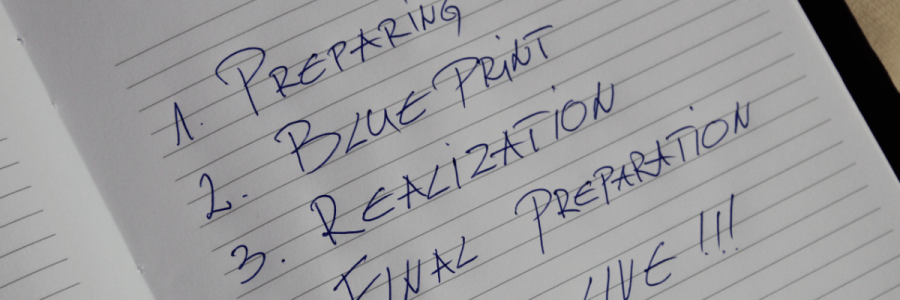 1. PREPARING
2. BLUE PRINT
3. REALIZATION
FINAL PREPARATION
LIVE !!!